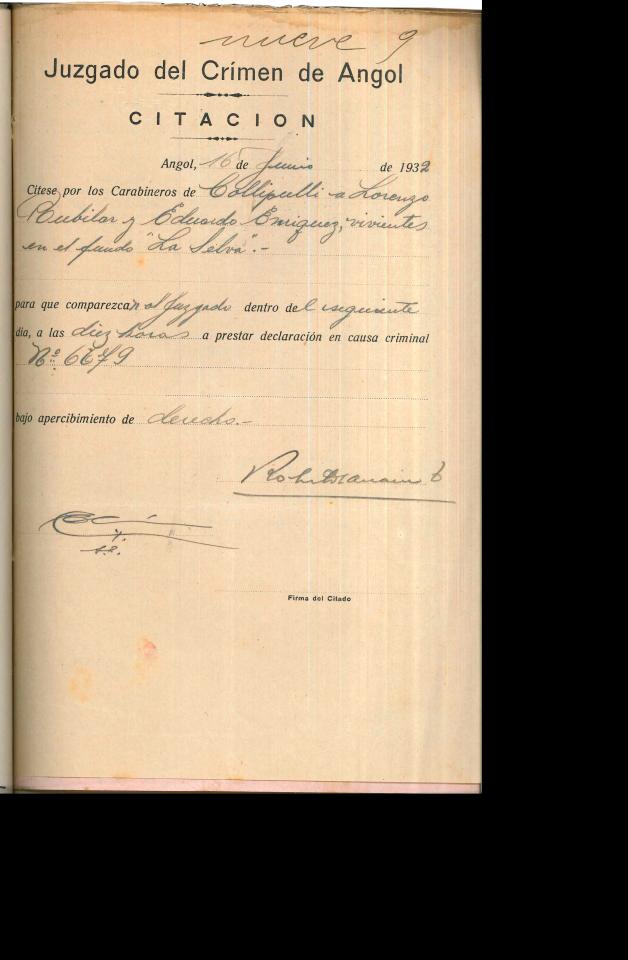 nueve 9
Juzgado del Crímen de Angol
CITACION
Angol, 16 de Junio de 1932
Citese por los Carabineros de Collipulli a Lorenzo
Rubilar y Eduardo Enriquez, vivientes
en el fundo "La Selva".-
para que comparezcan al Juzgado dentro del siguiente
dia, a las diez horas a prestar declaración en causa criminal
Nº 6679
bajo apercibimiento de derecho.-
Firma del Citado